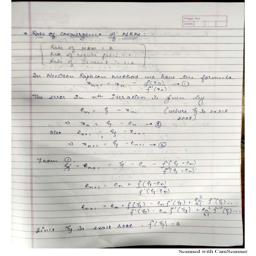 * Rate of Convergence of NRM:
Rate of NRM = 2
Rate of regula falsi = 1
Rate of Secant is 1.62
In Newton Raphson method we have the formula
xₙ₊₁ = xₙ - f(xₙ)/f'(xₙ) → ①
The error in nᵗʰ iteration is given by
eₙ = ξ - xₙ (where ξ is exact root)
⇒ xₙ = ξ - eₙ → ②
also eₙ₊₁ = ξ - xₙ₊₁
⇒ xₙ₊₁ = ξ - eₙ₊₁ → ③
From ①
ξ - eₙ₊₁ = ξ - eₙ - f(ξ-eₙ)/f'(ξ-eₙ)
eₙ₊₁ = eₙ + f(ξ-eₙ)/f'(ξ-eₙ)
Since ξ is exact root f(ξ) = 0
Scanned with CamScanner